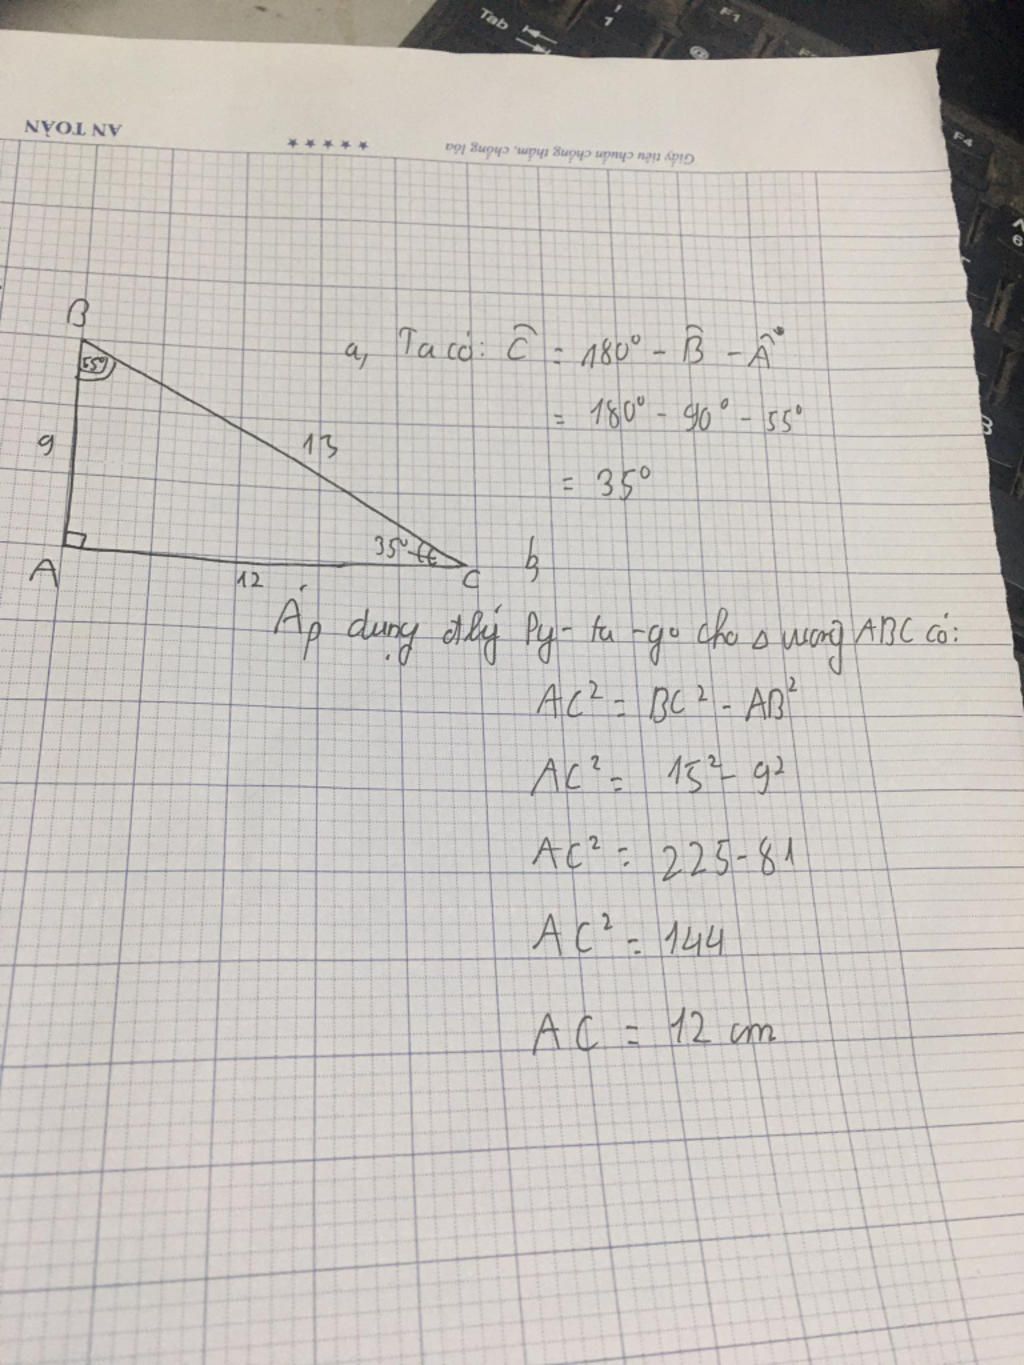 Tab
!
1
@
F1
F4
6
AN TOÀN
★★★★★
Giấy tiêu chuẩn chống thấm, chống lóa
B
55°
9
13
A
12
35°
C
a, Ta có: Ĉ = 180° - B̂ - Â
= 180° - 90° - 55°
= 35°
b,
Áp dụng đlý Py-ta-go cho Δ vuong ABC có:
AC² = BC² - AB²
AC² = 15² - 9²
AC² = 225 - 81
AC² = 144
AC = 12 cm